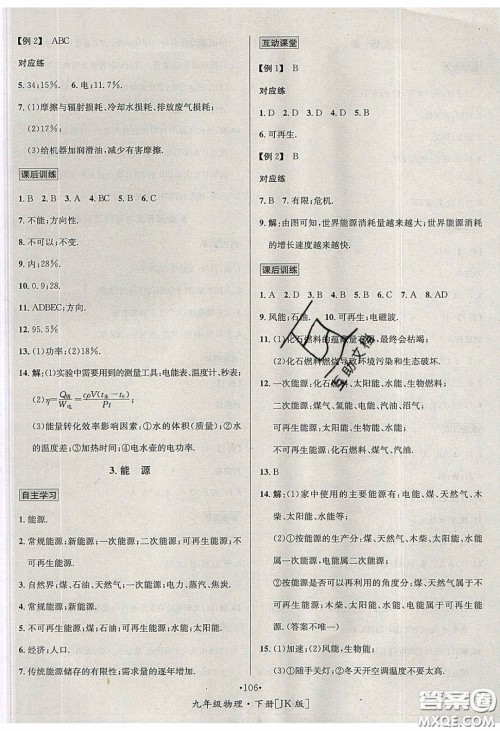 【例2】 ABC
对应练
5. 34;15%. 6. 电;11.7%.
7. (1)摩擦与辐射损耗、冷却水损耗、排放废气损耗;
(2)17%;
(3)给机器加润滑油,减少有害摩擦.
课后训练
1. B 2. B 3. A 4. BC 5. B 6. C
7. 不能;方向性.
8. 不可以;不变.
9. 内;28%.
10. 0.9;28.
11. ADBEC;方向.
12. 95.5%
13. (1)功率;(2)15%.
14. 解:(1)实验中需要用到的测量工具:电能表、温度计、秒表.
(2)η=Q吸/W电=cρV(t末-t0)/Pt
(3)能量转化效率影响因素:①水的体积(质量);②水
的温度差;③加热时间;④电水壶的电功率.
3. 能 源
自主学习
1. 能源.
2. 常规能源;新能源;一次能源;二次能源;可再生能源;不
可再生能源.
3. 自然界;煤、石油、天然气;一次能源;电力、蒸汽、焦炭.
4. 常规能源;新能源.
5. 不可再生能源;可再生能源;水能、太阳能.
6. 经济;人口.
7. 传统能源储存的有限性;需求量的逐年增加.
互动课堂
【例1】 B
对应练
1. D 2. D 3. D 4. D 5. A
6. 可再生.
【例2】 B
对应练
7. B 8. 有限;危机.
9. 解:由图可知,世界能源消耗量越来越大;世界能源消耗
的增长速度越来越快.
课后训练
1. A 2. B 3. D 4. C 5. B 6. C 7. A 8. AD
9. 风能;石油. 10. 可再生;电磁波.
11. (1)化石燃料的蕴藏量有限,最终会枯竭;
(2)化石燃料燃烧导致环境污染和生态破坏.
12. 一次能源:煤、天然气、水能、太阳能、生物能;二次
能源:煤气、氢能、电能;可再生能源:水能、太阳能、生
物能;不可再生能源:化石燃料、煤、天然气;化石能源:
煤、天然气;生物能源:生物能.
13. B
14. 解:(1)家中使用的主要能源有:电、煤、天然气、木
柴、太阳能、水能等;
(2)①按能源的生产分:煤、天然气、木柴、太阳能、水
能等是一次能源,电能属于二次能源;
②按能源是否可以再利用的角度分:煤、天然气等
属于不可再生能源;木柴、水能、太阳能、电能属于可
再生能源.(答案不唯一)
15. (1)随手关灯;(2)冬天开空调,温度设置不要过高.
·106·
九年级物理·下册[JK版]
互助文档
答案圈
MXQE.COM